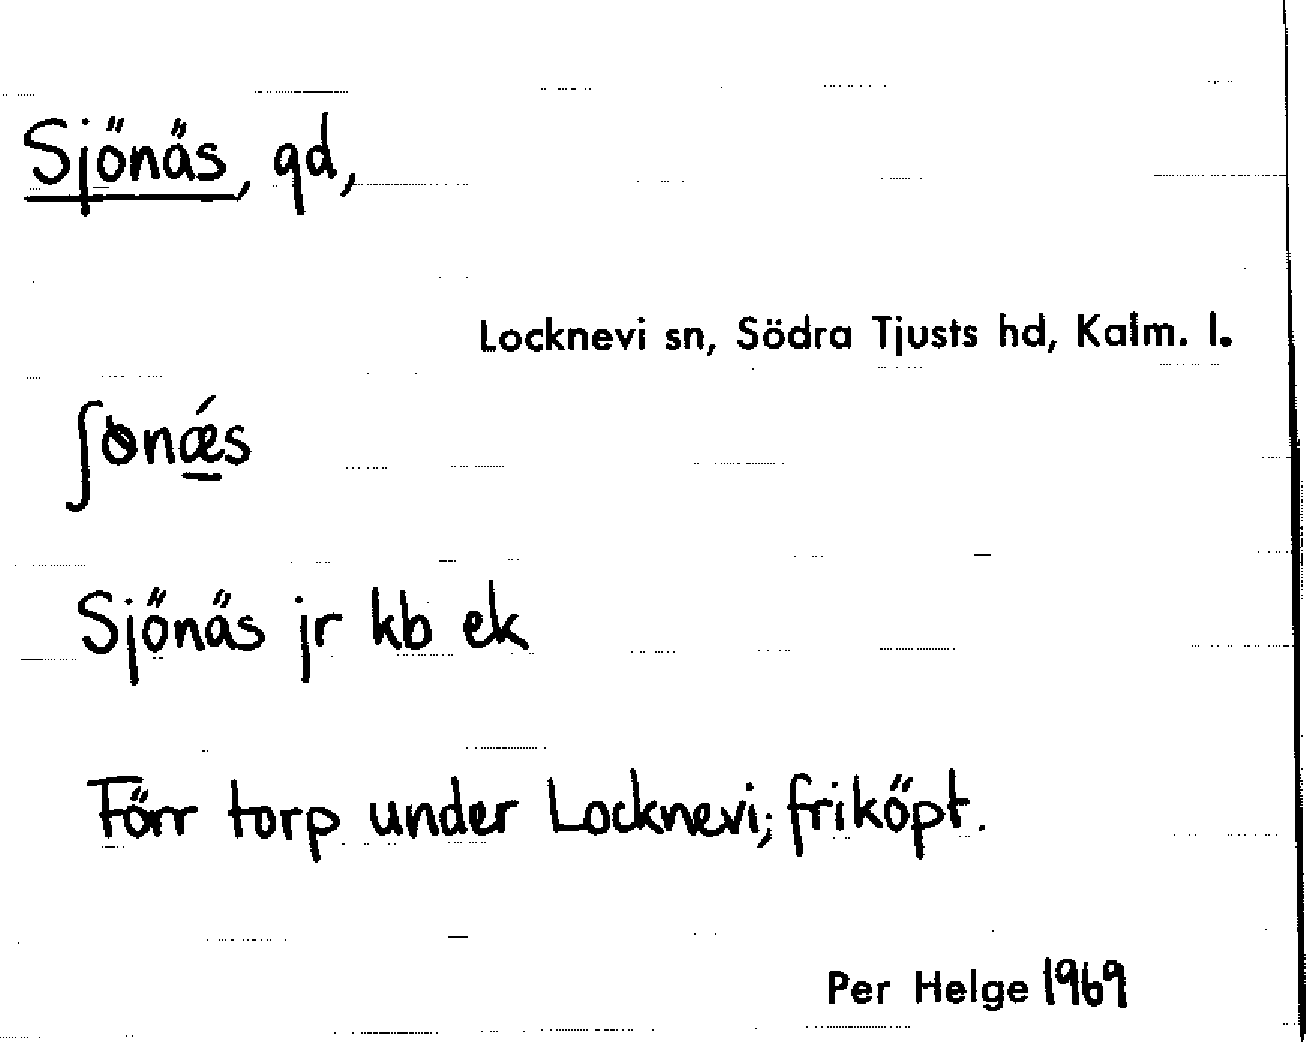 Sjönäs, gd,
Locknevi sn, Södra Tjusts hd, Kalm. l.
ʃɵnǽs
Sjönäs jr kb ek
Förr torp under Locknevi; friköpt.
Per Helge 1969